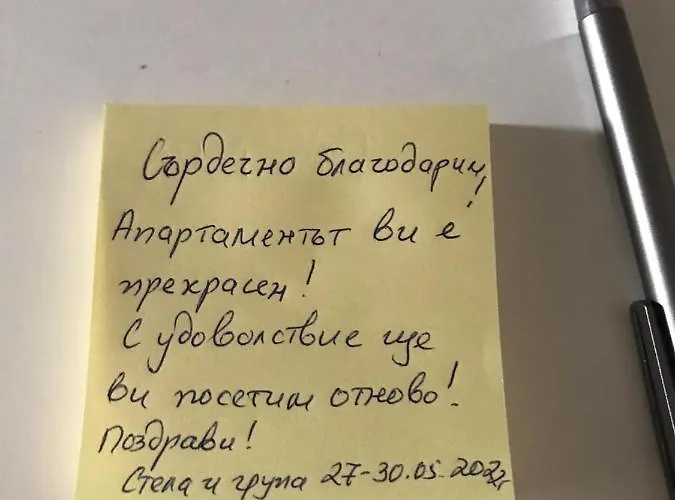 Сърдечно благодарим!
Апартаментът ви е
прекрасен!
С удоволствие ще
ви посетим отново!
Поздрави!
Стела и група 27-30.05.2022г.